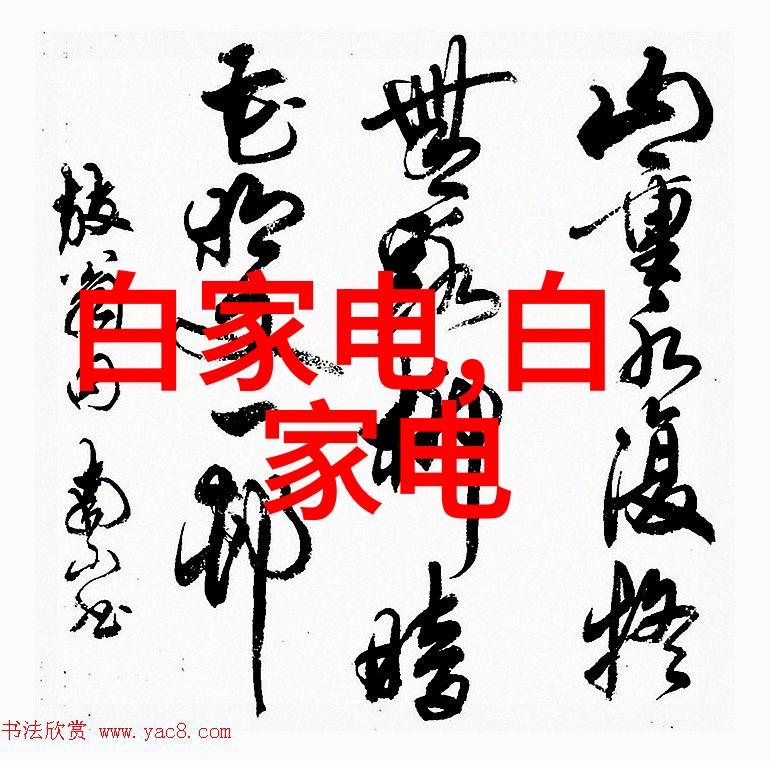 白家电,白
家电
山重水復疑
無路柳暗
花明又一邨
放翁句
书法欣赏 www.yac8.com